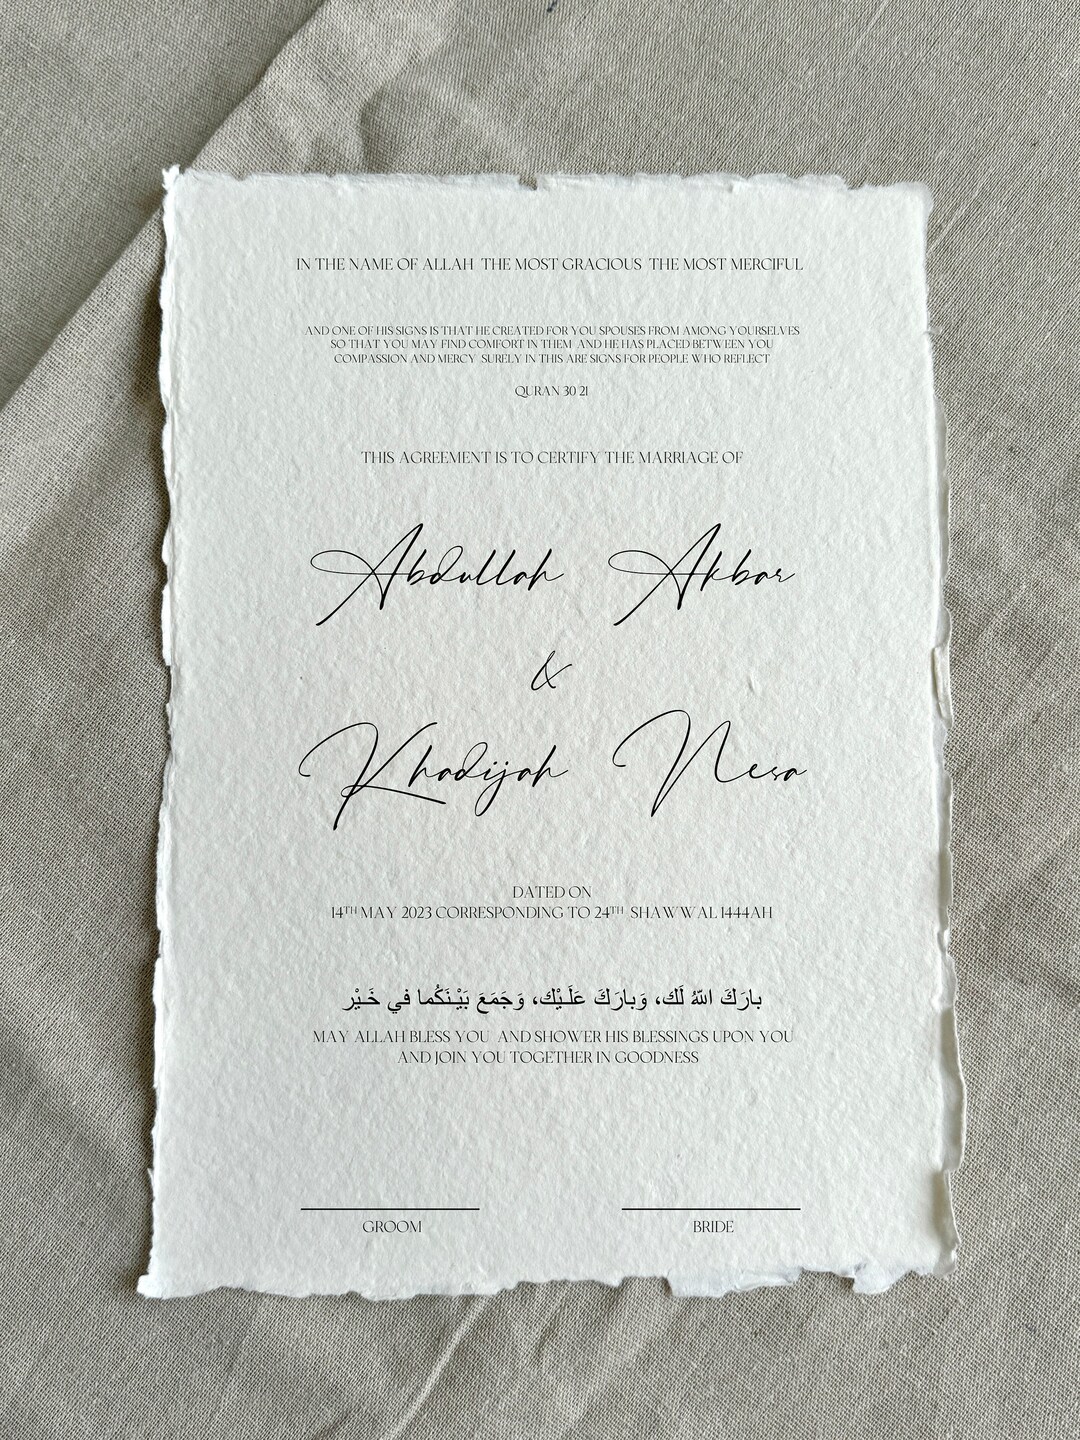 IN THE NAME OF ALLAH THE MOST GRACIOUS THE MOST MERCIFUL
AND ONE OF HIS SIGNS IS THAT HE CREATED FOR YOU SPOUSES FROM AMONG YOURSELVES
SO THAT YOU MAY FIND COMFORT IN THEM AND HE HAS PLACED BETWEEN YOU
COMPASSION AND MERCY SURELY IN THIS ARE SIGNS FOR PEOPLE WHO REFLECT
QURAN 30 21
THIS AGREEMENT IS TO CERTIFY THE MARRIAGE OF
Abdullah Akbar
&
Khadijah Nesa
DATED ON
14TH MAY 2023 CORRESPONDING TO 24TH SHAWWAL 1444AH
بارَكَ اللهُ لَك، وَبارَكَ عَلَـيْك، وَجَمَعَ بَيْـنَكُما في خَـيْر
MAY ALLAH BLESS YOU AND SHOWER HIS BLESSINGS UPON YOU
AND JOIN YOU TOGETHER IN GOODNESS
GROOM BRIDE